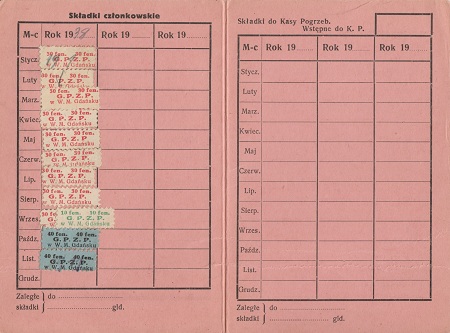 Składki członkowskie
M-c Rok 1938 Rok 19 Rok 19
Stycz.
30 fen. 30 fen.
G. P. Z. P.
w W. M. Gdańsku
Luty
30 fen. 30 fen.
G. P. Z. P.
w W. M. Gdańsku
Marz.
30 fen. 30 fen.
G. P. Z. P.
w W. M. Gdańsku
Kwiec.
30 fen. 30 fen.
G. P. Z. P.
w W. M. Gdańsku
Maj
30 fen. 30 fen.
G. P. Z. P.
w W. M. Gdańsku
Czerw.
30 fen. 30 fen.
G. P. Z. P.
w W. M. Gdańsku
Lip.
30 fen. 30 fen.
G. P. Z. P.
w W. M. Gdańsku
Sierp.
30 fen. 30 fen.
G. P. Z. P.
w W. M. Gdańsku
Wrześ.
30 fen.
10 fen. 30 fen.
G. P. Z. P.
w W. M. Gdańsku
Paźdz.
40 fen. 40 fen.
G. P. Z. P.
w W. M. Gdańsku
List.
40 fen. 40 fen.
G. P. Z. P.
w W. M. Gdańsku
Grudz.
Zaległe do
składki gld.
Składki do Kasy Pogrzeb.
Wstępne do K. P.
M-c Rok 19 Rok 19 Rok 19
Stycz.
Luty
Marz.
Kwiec.
Maj
Czerw.
Lip.
Sierp.
Wrześ.
Paźdz.
List.
Grudz.
Zaległe do
składki gld.